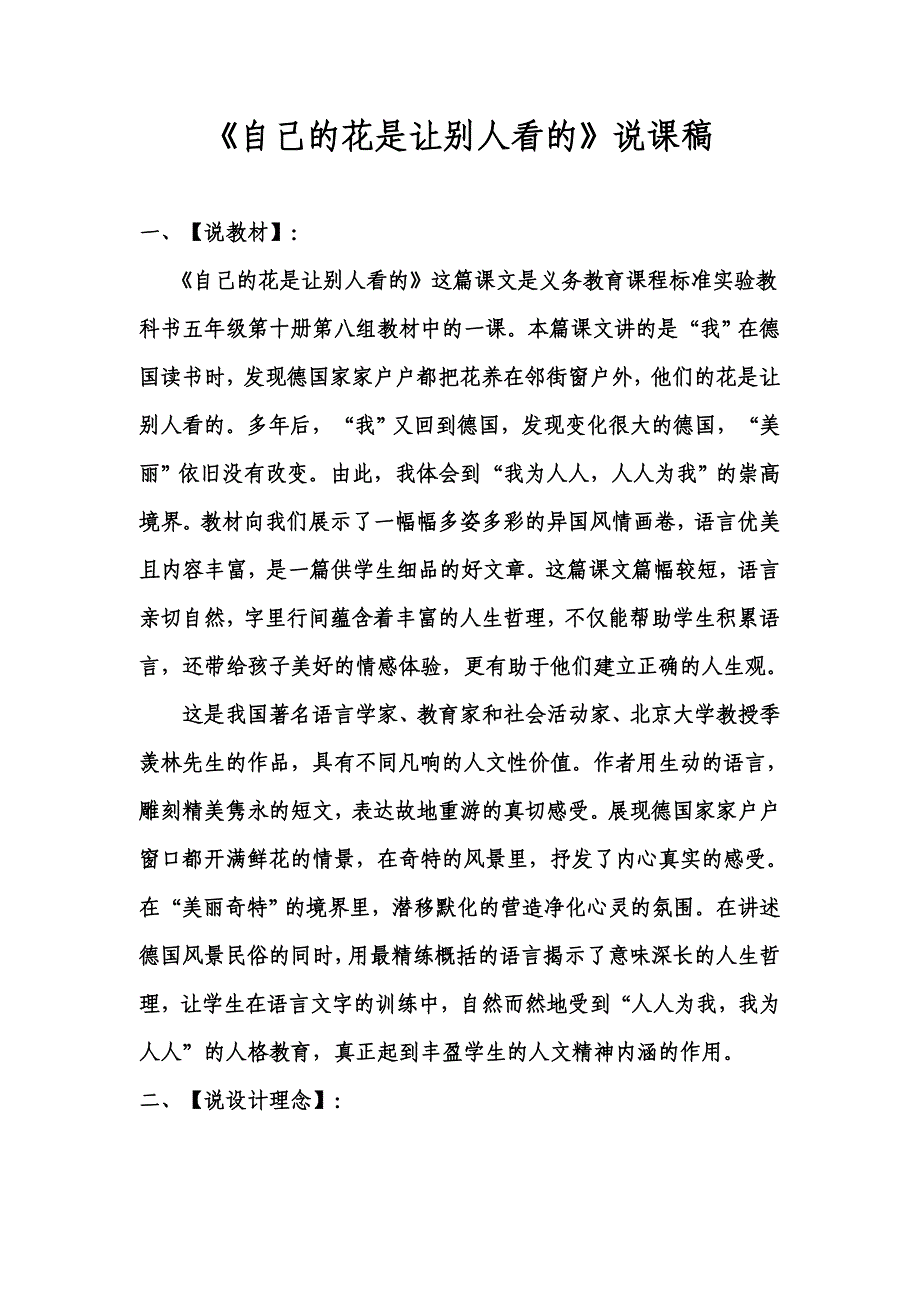 《自己的花是让别人看的》说课稿
一、【说教材】：
《自己的花是让别人看的》这篇课文是义务教育课程标准实验教
科书五年级第十册第八组教材中的一课。本篇课文讲的是“我”在德
国读书时，发现德国家家户户都把花养在邻街窗户外，他们的花是让
别人看的。多年后，“我”又回到德国，发现变化很大的德国，“美
丽”依旧没有改变。由此，我体会到“我为人人，人人为我”的崇高
境界。教材向我们展示了一幅幅多姿多彩的异国风情画卷，语言优美
且内容丰富，是一篇供学生细品的好文章。这篇课文篇幅较短，语言
亲切自然，字里行间蕴含着丰富的人生哲理，不仅能帮助学生积累语
言，还带给孩子美好的情感体验，更有助于他们建立正确的人生观。
这是我国著名语言学家、教育家和社会活动家、北京大学教授季
羡林先生的作品，具有不同凡响的人文性价值。作者用生动的语言，
雕刻精美隽永的短文，表达故地重游的真切感受。展现德国家家户户
窗口都开满鲜花的情景，在奇特的风景里，抒发了内心真实的感受。
在“美丽奇特”的境界里，潜移默化的营造净化心灵的氛围。在讲述
德国风景民俗的同时，用最精练概括的语言揭示了意味深长的人生哲
理，让学生在语言文字的训练中，自然而然地受到“人人为我，我为
人人”的人格教育，真正起到丰盈学生的人文精神内涵的作用。
二、【说设计理念】：